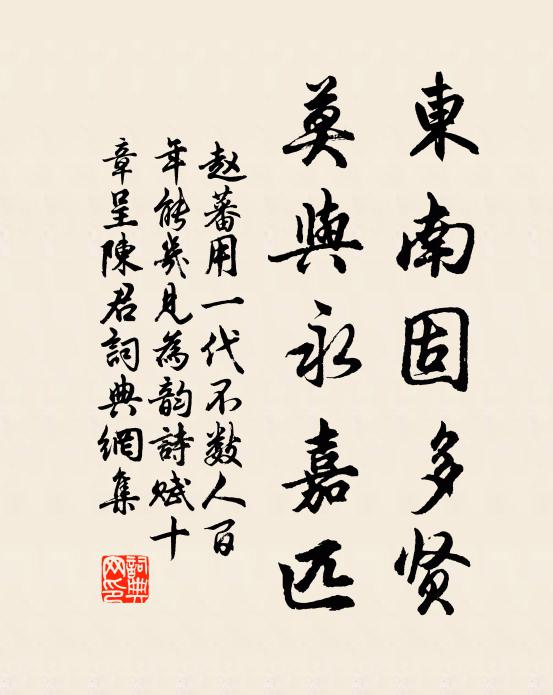 東南固多贤
莫與永嘉匹
赵蕃用一代不数人百
年能幾見為韵詩赋十
章呈陳君詞典網集
詞典
网印